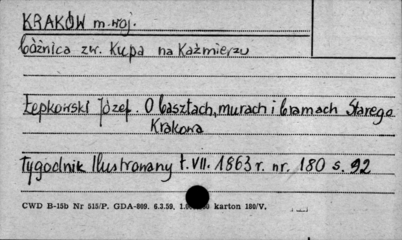 KRAKÓW m. woj.
bóżnica zw. Kupa na Kaźmierzu
Łepkowski Józef. O basztach, murach i bramach Starego
Krakowa
Tygodnik Ilustrowany t. VII. 1863 r. nr. 180 s. 92
CWD B-15b Nr 515/P. GDA-809. 6.3.59. karton 180/V.